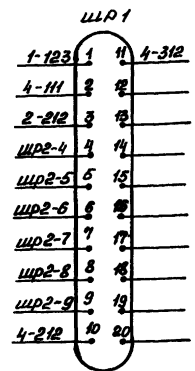 шр1
1-123 1 11 4-312
4-111 2 12
2-212 3 13
шр2-4 4 14
шр2-5 5 15
шр2-6 6 16
шр2-7 7 17
шр2-8 8 18
шр2-9 9 19
4-212 10 20